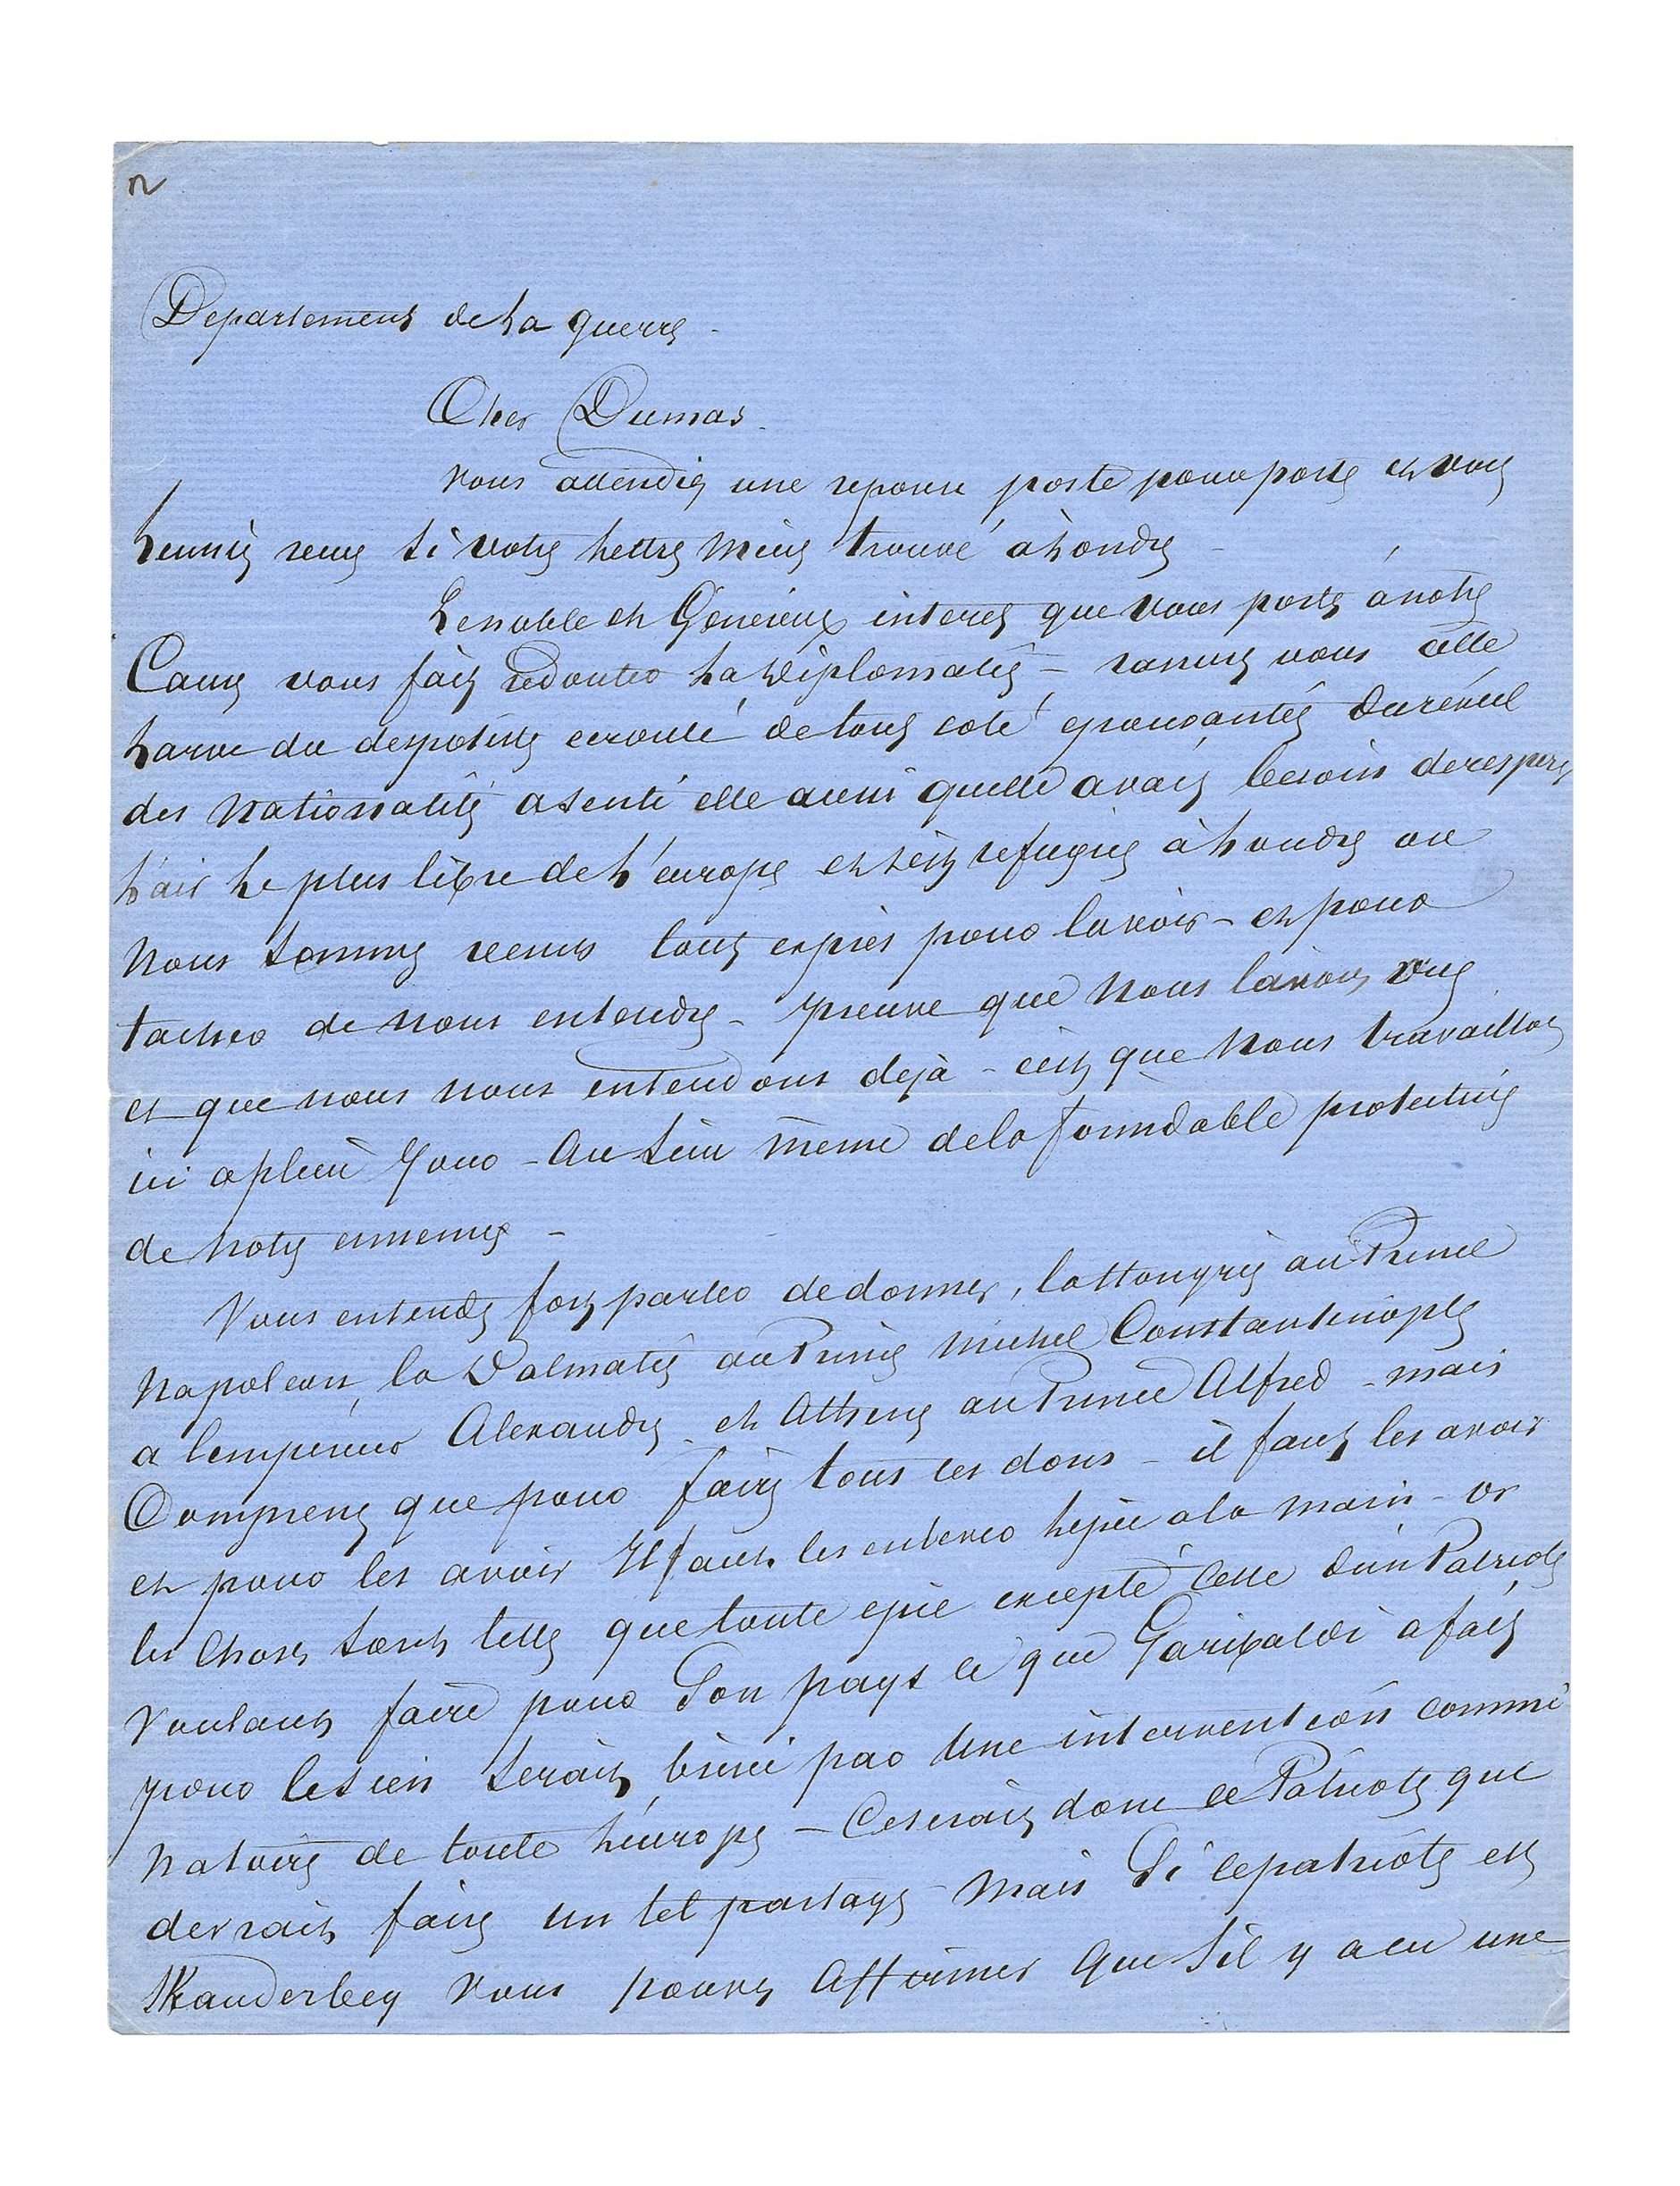 n
Departement de La guerre -
Cher Dumas.
Vous attendiez une reponse poste pour poste et vous
L'eussiez reçue si votre Lettre M'eut trouvé à Londres -
Le noble et Généreux interet que vous portez à notre
Cause vous fait redouter La Diplomatie - rassurez vous cette
Larve du despotisme de tout coté epouvantée du réveil
des Nationalités a senti elle aussi quelle avait besoin de respirer
L'air Le plus libre de L'europe et s'est refugiée à Londres ou
Nous sommes venus tout exprès pour la voir - et pour
tacher de nous entendre - preuve que Nous lavons vue
et que nous nous entendons dejà - c'est que Nous travaillons
ici a plein Jour - Au sein même de la formidable protectrice
de Notre ennemie -
Vous entendez fort parler de donner, la Hongrie au Prince
Napoleon, la Dalmatie au Prince Michel Constantinople
a lempereur Alexandre - et Athene au Prince Alfred - mais
Comprenez que pour faire tous ces dons - il faut les avoir
et pour les avoir Il faut les enlever L'epée a la main - or
les Choses sont telles que toute epée excepté Celle d'un Patriote
Voulant faire pour Son pays ce que Garibaldi a fait
pour le sien serait brisée par Une intervention commi
Natoire de toute L'europe - Ce serait donc ce Patriote que
devrait faire un tel partage - Mais Si ce patriote est
Skanderbeg Vous pouvez Affirmer Que s'il y a eu une